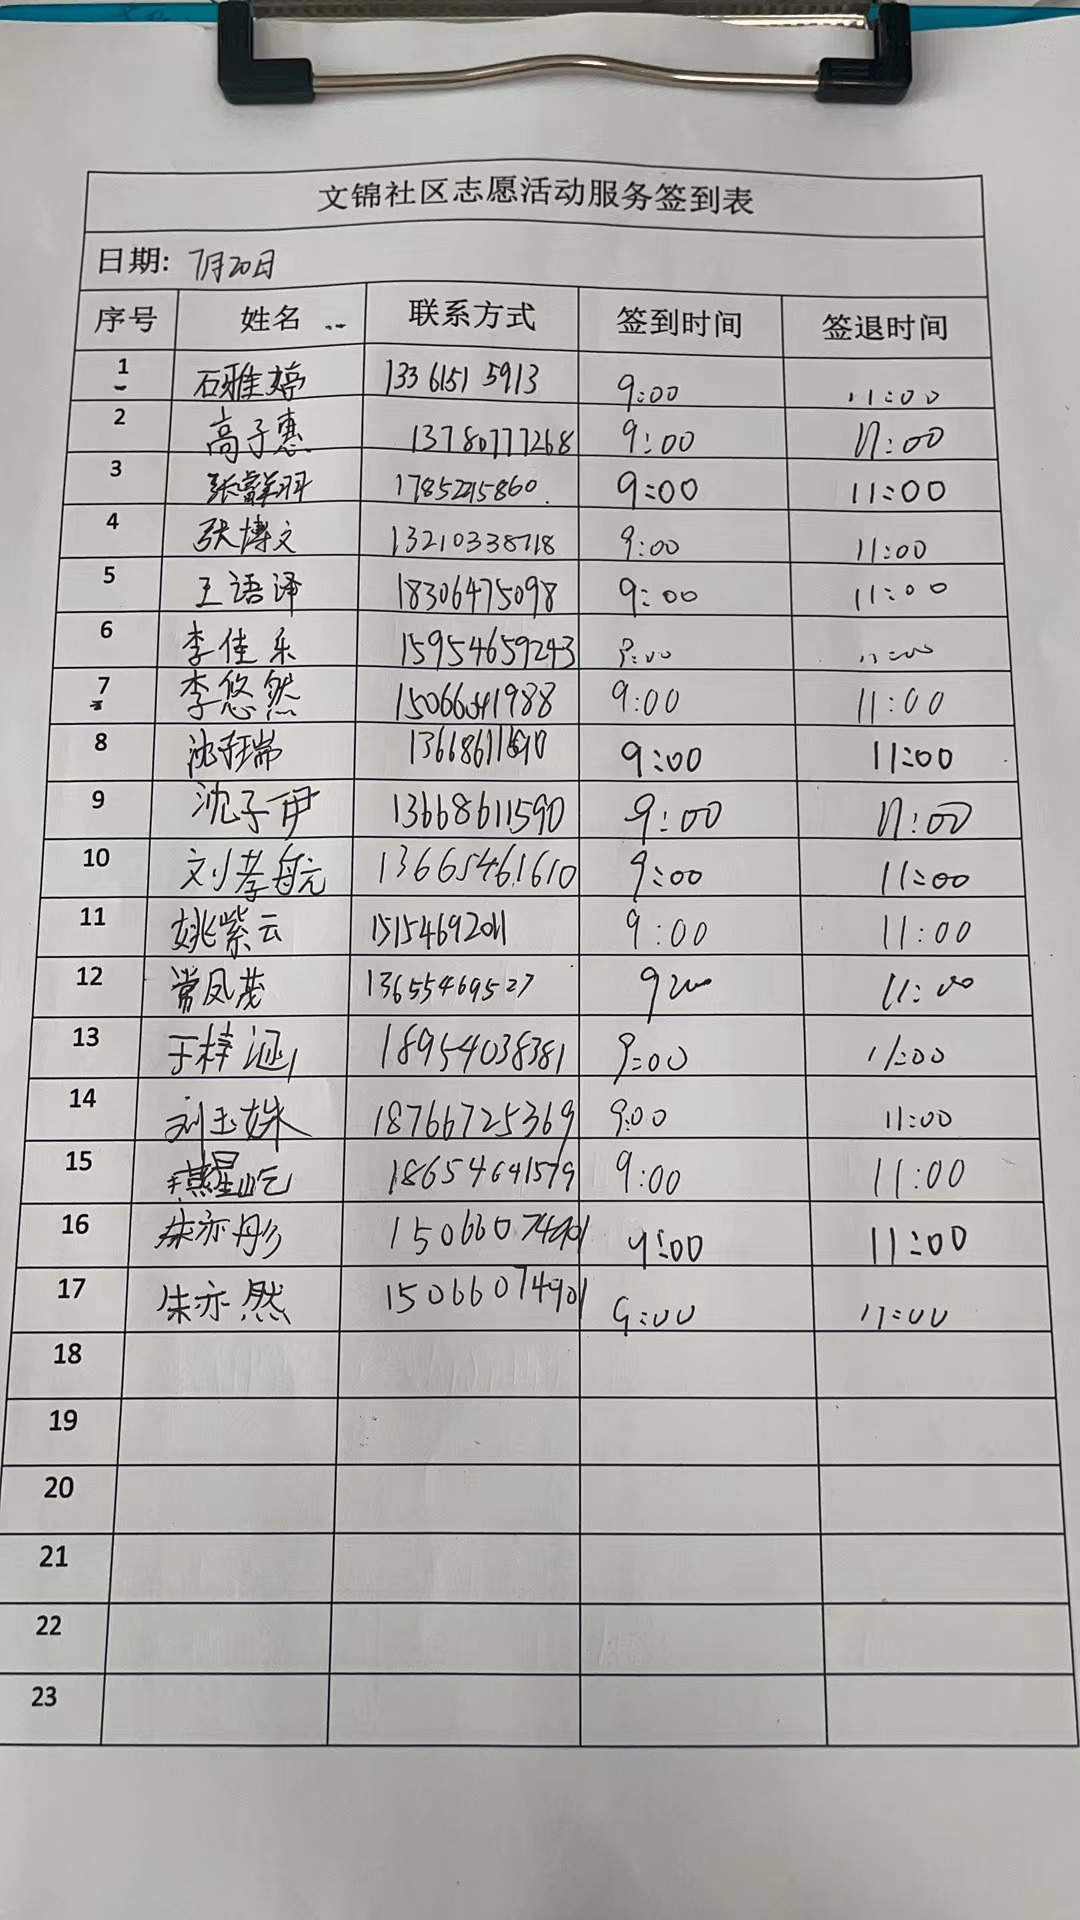 文锦社区志愿活动服务签到表
日期: 7月20日
序号 姓名 联系方式 签到时间 签退时间
1 石雅婷 13361515913 9:00 11:00
2 高子惠 13780777268 9:00 11:00
3 9:00 11:00
4 张博文 13210338718 9:00 11:00
5 王语泽 18306475098 9:00 11:00
6 李佳乐 15954659243 9:00 11:00
7 李悠然 15066541988 9:00 11:00
8 9:00 11:00
9 沈子伊 13668611590 9:00 11:00
10 刘孝航 13665461610 9:00 11:00
11 姚紫云 15154692011 9:00 11:00
12 常凤茂 13655469527 9:00 11:00
13 于梓涵 18954038381 9:00 11:00
14 刘玉姝 18766725369 9:00 11:00
15 18654641579 9:00 11:00
16 朱亦彤 15066074901 9:00 11:00
17 朱亦然 15066074901 9:00 11:00
18
19
20
21
22
23